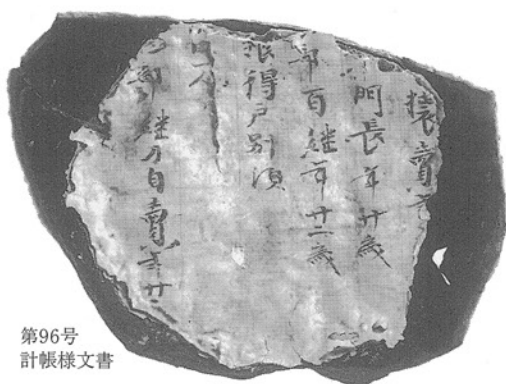 賣年
門長年廿歳
部百継年廿二歳
得戸別項
部継刀自賣年廿
第96号
計帳様文書